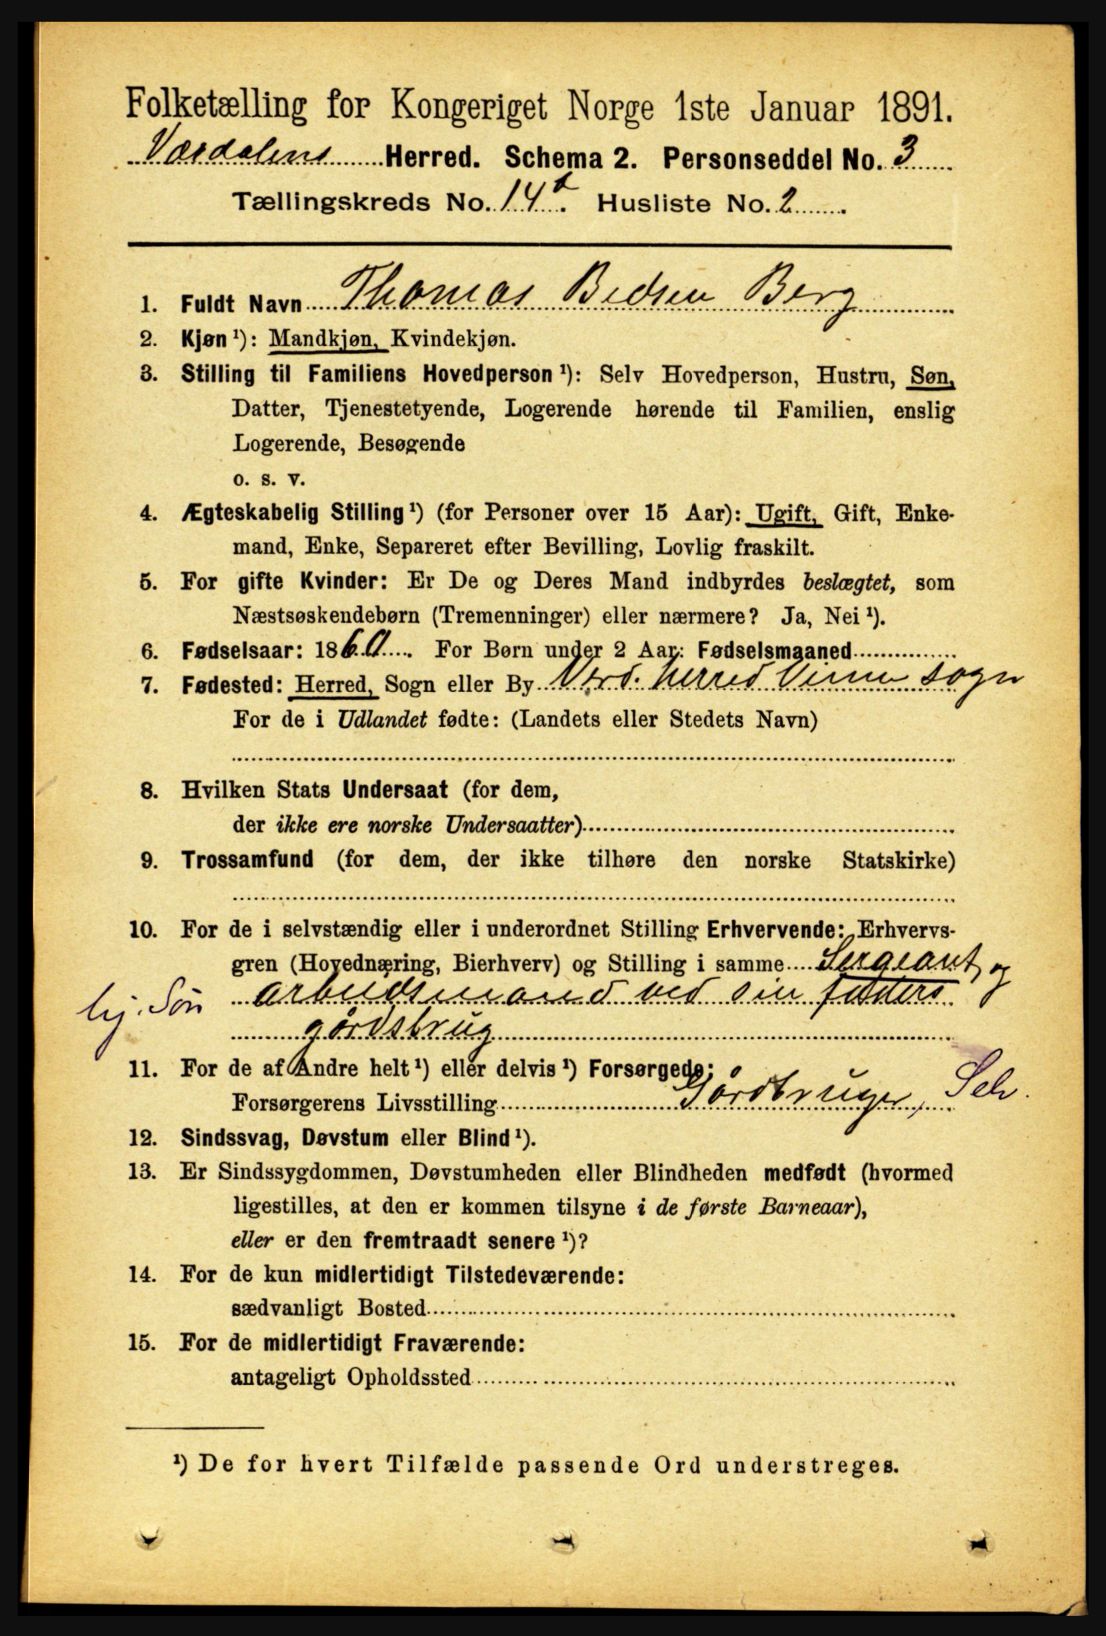 Folketælling for Kongeriget Norge 1ste Januar 1891.
Værdalens Herred. Schema 2. Personseddel No. 3
Tællingskreds No. 14 . Husliste No. 2 .
1. Fuldt Navn Thomas Berg
2. Kjøn ¹): Mandkjøn, Kvindekjøn.
3. Stilling til Familiens Hovedperson ¹): Selv Hovedperson, Hustru, Søn,
Datter, Tjenestetyende, Logerende hørende til Familien, enslig
Logerende, Besøgende
o. s. v.
4. Ægteskabelig Stilling ¹) (for Personer over 15 Aar): Ugift, Gift, Enke-
mand, Enke, Separeret efter Bevilling, Lovlig fraskilt.
5. For gifte Kvinder: Er De og Deres Mand indbyrdes beslægtet, som
Næstsøskendebørn (Tremenninger) eller nærmere? Ja, Nei ¹).
6. Fødselsaar: 1860. For Børn under 2 Aar: Fødselsmaaned
7. Fødested: Herred, Sogn eller By Verd. herred Vinne sogn
For de i Udlandet fødte: (Landets eller Stedets Navn)
8. Hvilken Stats Undersaat (for dem,
der ikke ere norske Undersaatter)
9. Trossamfund (for dem, der ikke tilhøre den norske Statskirke)
10. For de i selvstændig eller i underordnet Stilling Erhvervende: Erhvervs-
gren (Hovednæring, Bierhverv) og Stilling i samme Sergeant, og
hj. Søn arbeidsmand ved sin faders
gårdsbrug
11. For de af Andre helt ¹) eller delvis ¹) Forsørgede:
Forsørgerens Livsstilling Gårdbruger, Selv.
12. Sindssvag, Døvstum eller Blind ¹).
13. Er Sindssygdommen, Døvstumheden eller Blindheden medfødt (hvormed
ligestilles, at den er kommen tilsyne i de første Barneaar),
eller er den fremtraadt senere ¹)?
14. For de kun midlertidigt Tilstedeværende:
sædvanligt Bosted
15. For de midlertidigt Fraværende:
antageligt Opholdssted
¹) De for hvert Tilfælde passende Ord understreges.